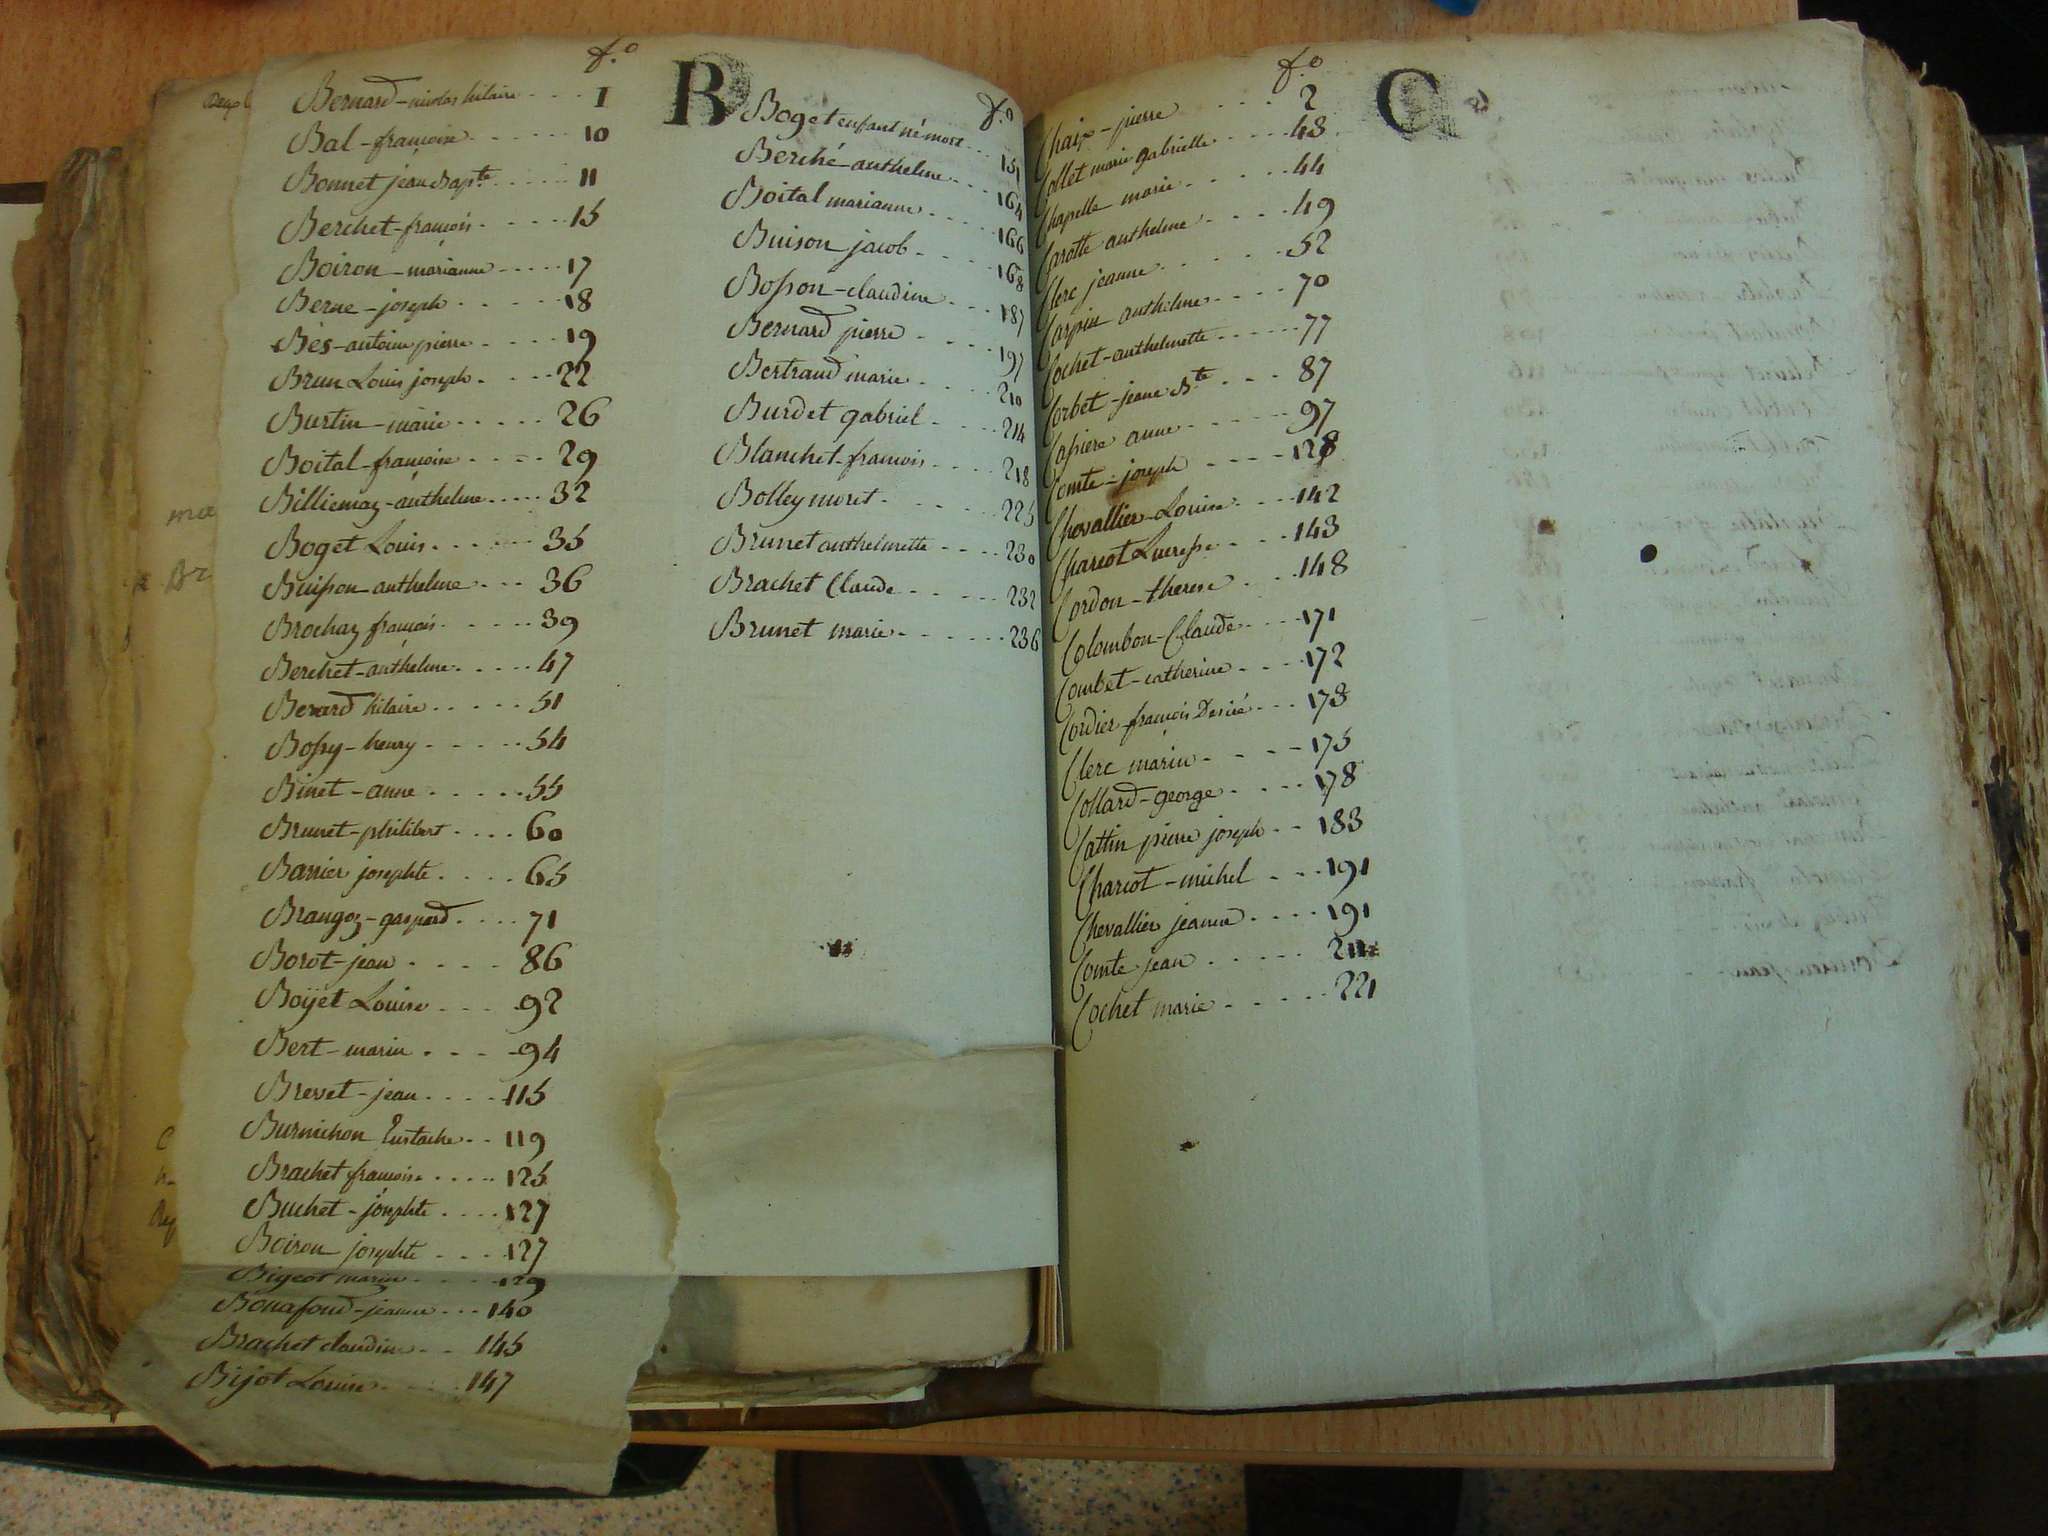 f.o
Bernard - nicolas hilaire 1
Bal - françoise 10
Bonnet jean Bapte 11
Berchet - françois 15
Boiron - marianne 17
Berne - joseph 18
Bès - antoine pierre 19
Brun Louis joseph 22
Burtin - marie 26
Boital - françoise 29
Billiemaz - anthelme 32
Boget Louis 35
Buisson anthelme 36
Brochay françois 39
Berchet - anthelme 47
Berard hilaire 51
Bossy - henry 54
Binet - anne 55
Brunet - philibert 60
Barrier josephte 65
Brangoz - gaspard 71
Borot - jean 86
Boÿet Louise 92
Bert - marin 94
Brevet - jean 115
Burnichon Eustache 119
Brachet françoise 125
Buchet - josephte 127
Boiron josephte 127
Bigeot marin 129
Bonafond - jeanne 140
Brachet claudine 145
Bijot Louise 147
B
f.o
Boget enfant né mort 151
Berché anthelme 164
Boital marianne 166
Buison jacob 168
Bosson - claudine 187
Bernard pierre 197
Bertrand marie 210
Burdet gabriel 214
Blanchet - françois 218
Bolley moret 225
Brunet anthelmette 230
Brachet Claude 232
Brunet marie 236
f.o
C
Chaix - pierre 2
Collet marie gabrielle 43
Chapelle marie 44
Carotte anthelme 49
Clerc jeanne 52
Carpin anthelme 70
Cochet - anthelmette 77
Corbet - jeane Bte 87
Cassiere anne 97
Comte - joseph 128
Chevallier - Louise 142
Charcot Lucresse 143
Cordon - therese 148
Colombon - Claude 171
Combet - catherine 172
Cordier - françois Desiré 173
Clerc marin 175
Collard - george 178
Cattin pierre joseph 183
Charcot - michel 191
Chevallier jeanne 191
Comte jean
Cochet marie 221